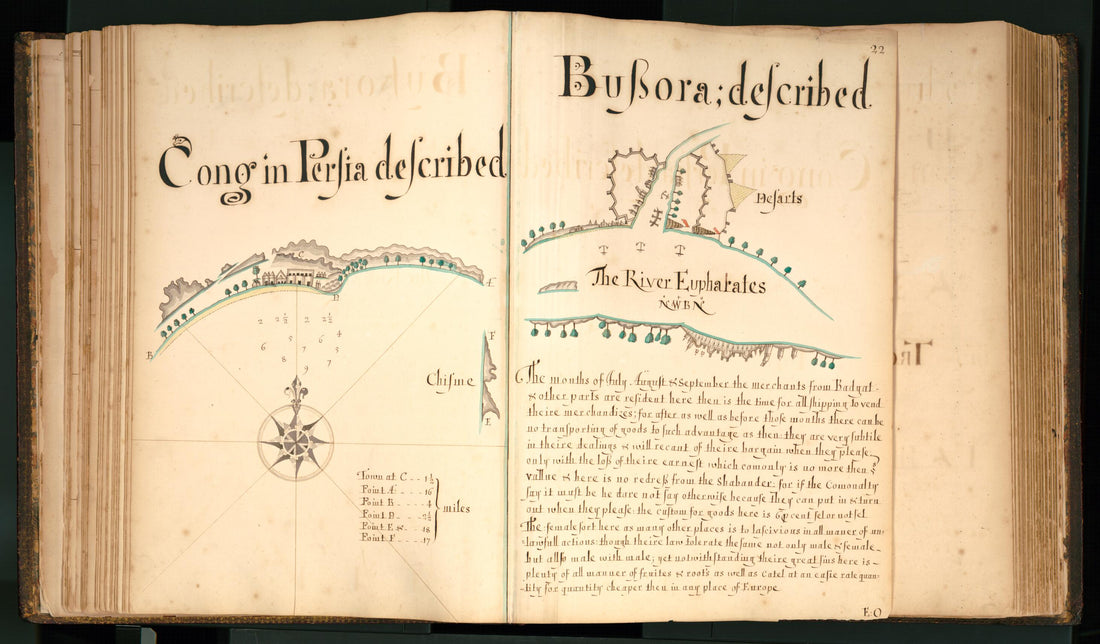 Cong in Persia described
C
A
B
D
2 2½ 2 2½
4
5 6
6 7 5
8 9 7
F
Chisme
E
Town at C - - 1½
Point A - - - 16
Point B - - - - 4
Point D - - - 2½
Point E & - - 18
Point F - - - - 17
miles
22
Bussora; described
Desarts
The River Eupharates
NWBN
The months of July August & September the merchants from Badgat
& other parts are resident here then is the time for all shipping to vend
theire merchandizes; for after as well as before those months there can be
no transporting of goods to such advantage as then: they are very subtile
in theire dealings & will recant of theire bargain when they please
only with the loss of theire earnest which comonly is no more then
vallue & here is no redress from the Shabander for if the Comonalty
say it must be he dare not say otherwise because they can put in & turn
out when they please: the custom for goods here is 6 p cent sel or not sel
The female sort here as many other places is to lascivious in all maner of un
lawfull actions: though theire law tolerate the same not only male & female
but allso male with male; yet notwithstanding theire great sins here is
plenty of all manner of fruites & roots as well as catel at an easie rate quan
tity for quantity cheaper then in any place of Europe